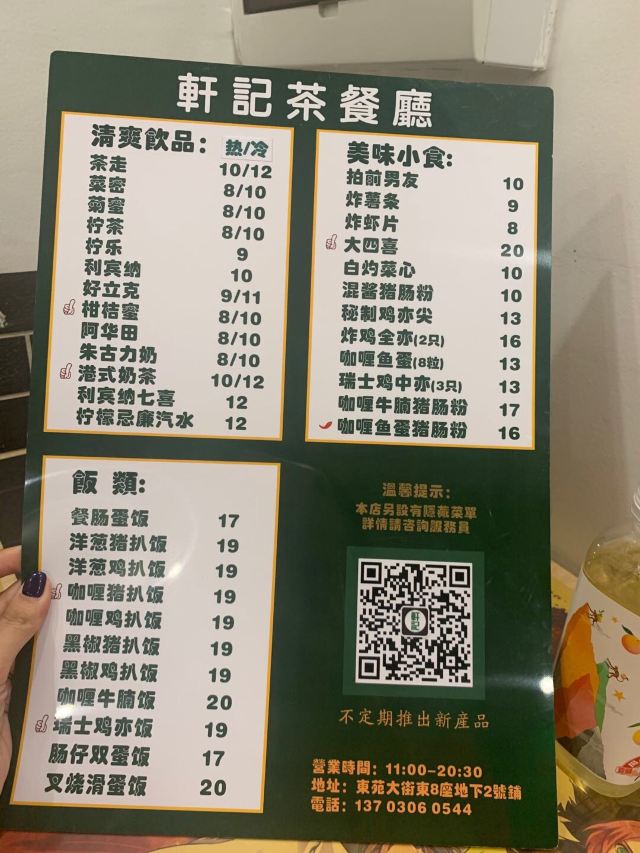 軒記茶餐廳
清爽飲品: 热/冷
茶走 10/12
菜密 8/10
菊蜜 8/10
柠茶 8/10
柠乐 9
利宾纳 10
好立克 9/11
柑桔蜜 8/10
阿华田 8/10
朱古力奶 8/10
港式奶茶 10/12
利宾纳七喜 12
柠檬忌廉汽水 12
美味小食:
拍前男友 10
炸薯条 9
炸虾片 8
大四喜 20
白灼菜心 10
混酱猪肠粉 10
秘制鸡亦尖 13
炸鸡全亦(2只) 16
咖喱鱼蛋(8粒) 13
瑞士鸡中亦(3只) 13
咖喱牛腩猪肠粉 17
咖喱鱼蛋猪肠粉 16
飯類:
餐肠蛋饭 17
洋葱猪扒饭 19
洋葱鸡扒饭 19
咖喱猪扒饭 19
咖喱鸡扒饭 19
黑椒猪扒饭 19
黑椒鸡扒饭 19
咖喱牛腩饭 20
瑞士鸡亦饭 19
肠仔双蛋饭 17
叉烧滑蛋饭 20
溫馨提示:
本店另設有隱藏菜單
詳情請咨詢服務員
軒記
不定期推出新産品
營業時間: 11:00-20:30
地址: 東苑大街東8座地下2號鋪
電話: 137 0306 0544